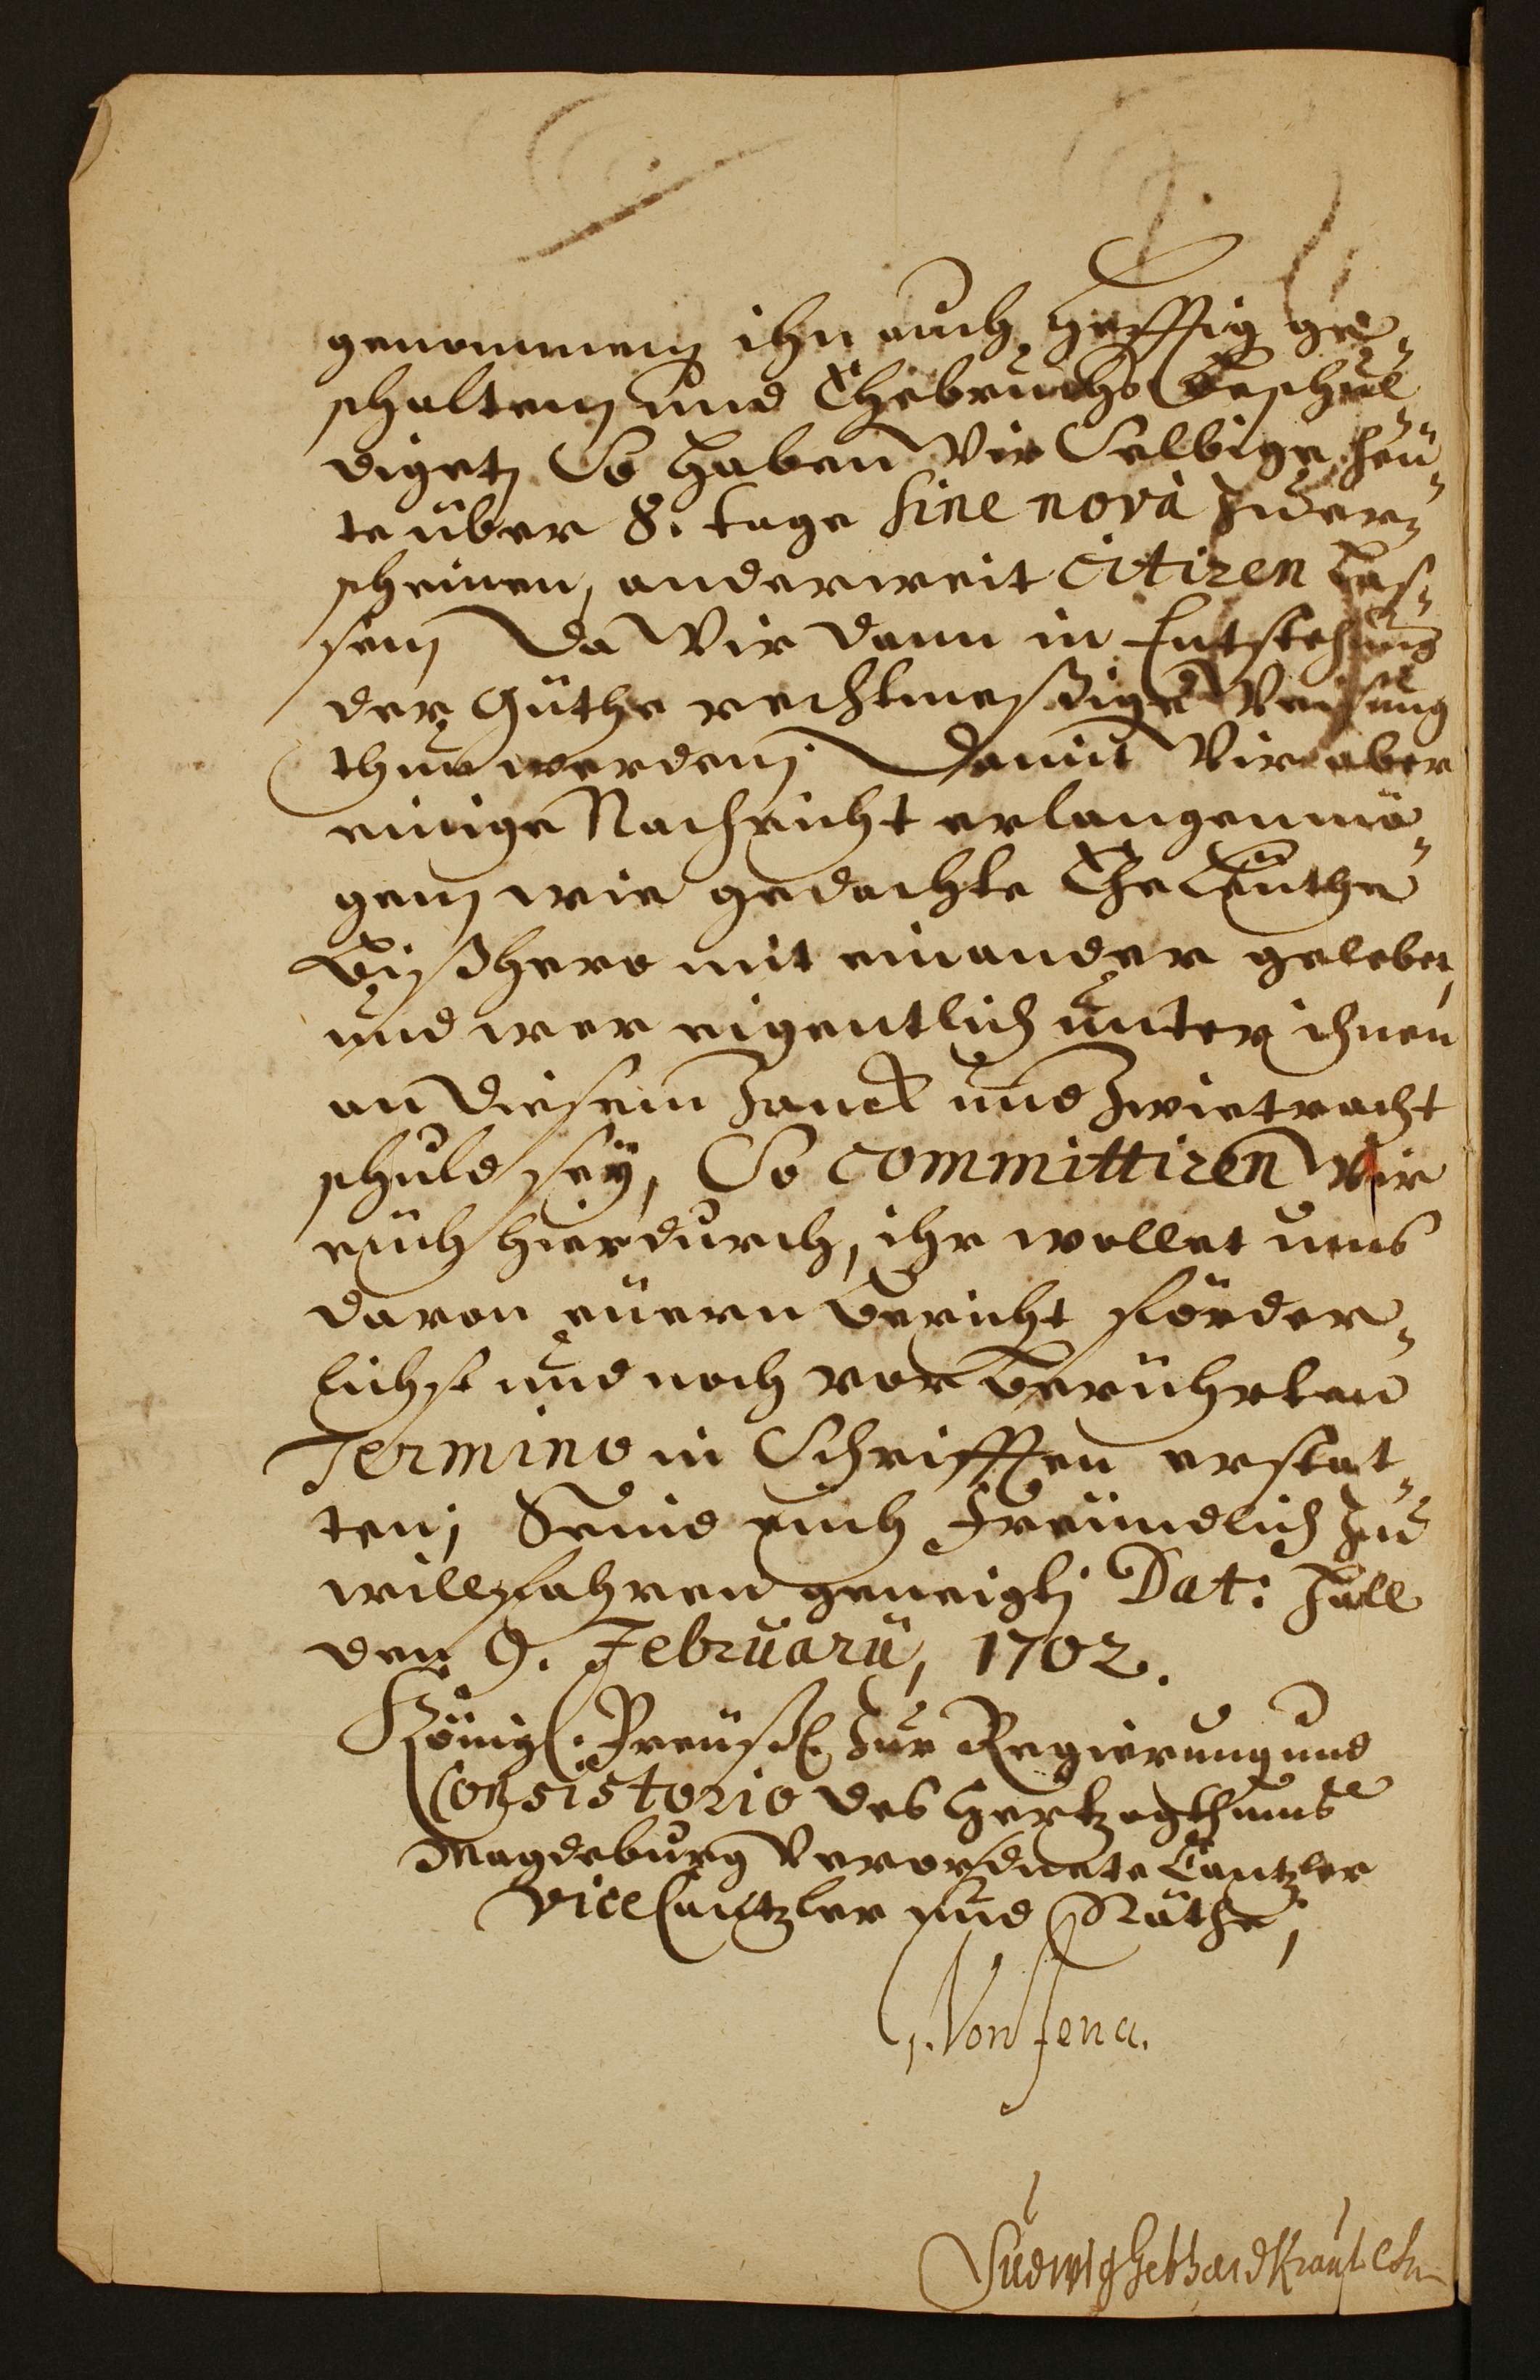 genommen, ihn auch hefftig ge-
scholten und Ehebruchs beschul-
diget, So haben Wir Selbige heü-
te über 8. tage sine nova zuer-
scheinen, anderweit citiren laß-
sen, Da Wir dann in Entstehung
der Güthe rechtmeßige Weisung
thun werden, Damit Wir aber
einige Nachricht erlangen mö-
gen, wie gedachte Eheleüthe
bißhero mit einander gelebet,
und wer eigentlich unter ihnen
an diesem Zanck und Zwietracht
schuld seÿ, So committiren Wir
euch hierdurch, ihr wollet unß
davon eüern bericht förder-
lichst und noch vor berührten
Termino in Schrifften erstat-
ten, Seind euch Freündlich zu
willfahren geneigt, Dat: Hall
den 9. Februarii, 1702.
Königl. Preüßl. zur Regierung und
Consistorio des Hertzogthums
Magdeburg Verordnete Cantzler
Vice Cantzler und Räthe,
G. Von Jena.
Ludwig Gebhard Kraut